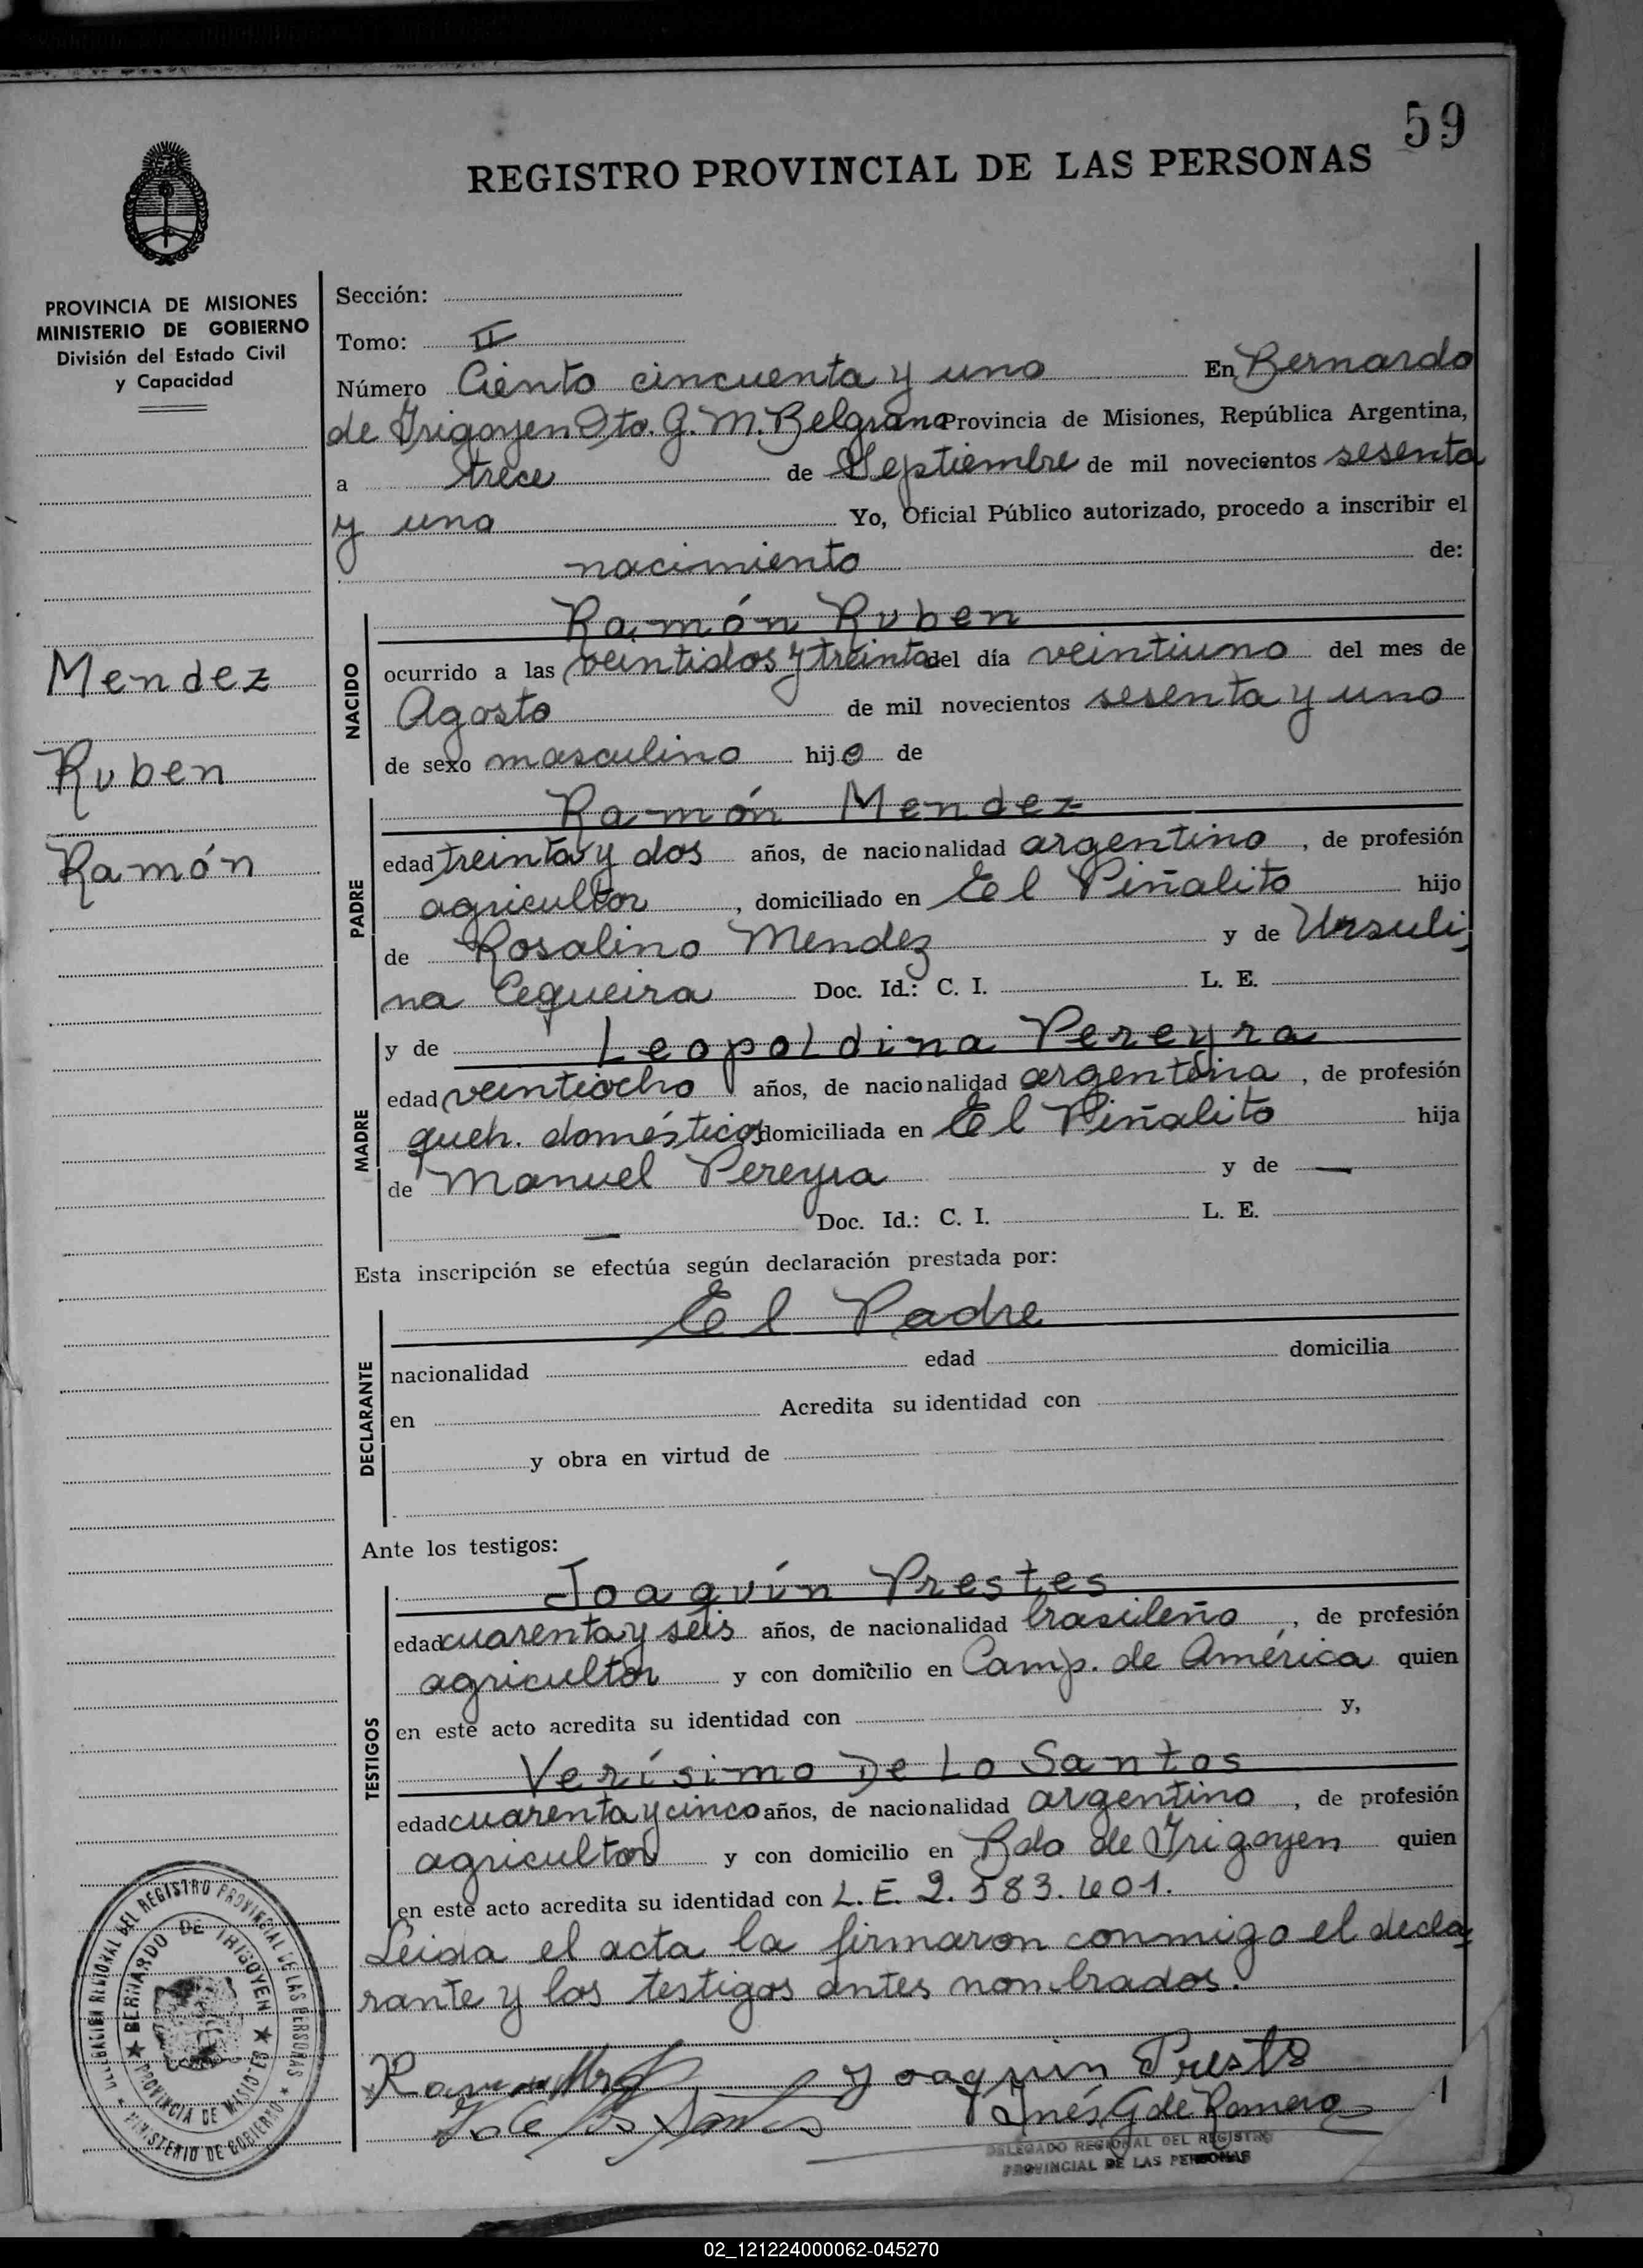 59
REGISTRO PROVINCIAL DE LAS PERSONAS
PROVINCIA DE MISIONES
MINISTERIO DE GOBIERNO
División del Estado Civil
y Capacidad
Mendez
Ruben
Ramón
Sección:
Tomo: II
Número Ciento cincuenta y uno En Bernardo
de Irigoyen Dto. G. M. Belgrano Provincia de Misiones, República Argentina,
a trece de Septiembre de mil novecientos sesenta
y uno Yo, Oficial Público autorizado, procedo a inscribir el
nacimiento de:
NACIDO
Ramón Ruben
ocurrido a las veintidos y treinta del día veintiuno del mes de
Agosto de mil novecientos sesenta y uno
de sexo masculino hijo de
PADRE
Ramón Mendez
edad treinta y dos años, de nacionalidad argentino, de profesión
agricultor, domiciliado en El Piñalito hijo
de Rosalino Mendez y de Ursuli
na Cequeira Doc. Id.: C. I. L. E.
MADRE
y de Leopoldina Pereyra
edad veintiocho años, de nacionalidad argentina, de profesión
queh. domésticos domiciliada en El Piñalito hija
de Manuel Pereyra y de —
— Doc. Id.: C. I. L. E.
Esta inscripción se efectúa según declaración prestada por:
DECLARANTE
El Padre
nacionalidad edad domicilia
en Acredita su identidad con
y obra en virtud de
Ante los testigos:
TESTIGOS
Joaquín Prestes
edad cuarenta y seis años, de nacionalidad brasileño, de profesión
agricultor y con domicilio en Camp. de América quien
en este acto acredita su identidad con y,
Verísimo De Lo Santos
edad cuarenta y cinco años, de nacionalidad argentino, de profesión
agricultor y con domicilio en Bdo de Irigoyen quien
en este acto acredita su identidad con L. E. 2.583.401.
Leida el acta la firmaron conmigo el decla
rante y los testigos antes nombrados.
Joaquin Prests
Inés G de Romero
DELEGADO REGIONAL DEL REGISTRO
PROVINCIAL DE LAS PERSONAS
DELEGACION REGIONAL DEL REGISTRO PROVINCIAL DE LAS PERSONAS
MINISTERIO DE GOBIERNO
BERNARDO DE IRIGOYEN
PROVINCIA DE MISIONES
02_121224000062-045270